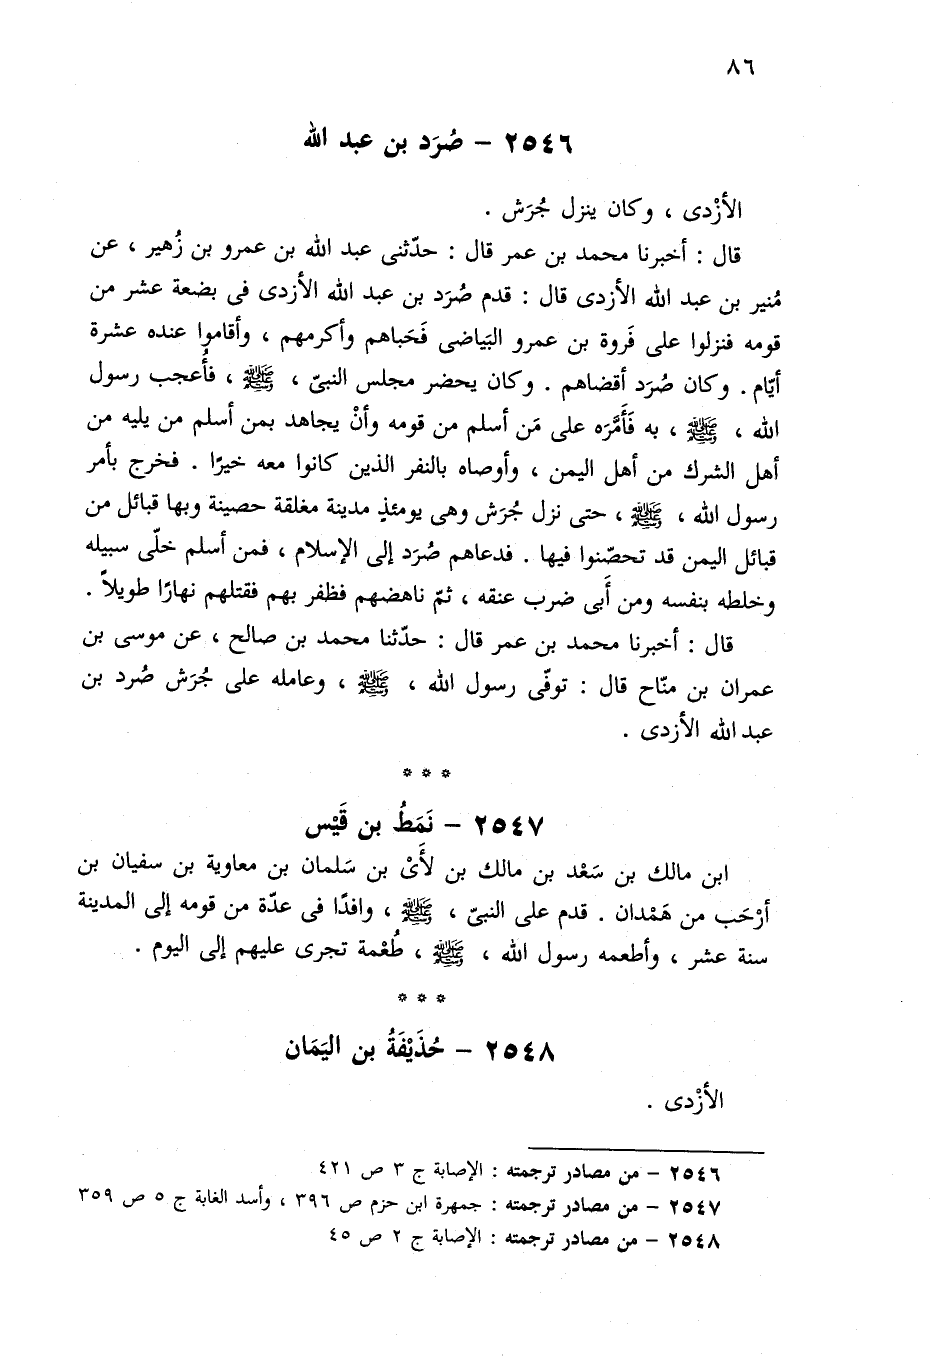 ٨٦
٢٥٤٦ – صُرَد بن عبد الله
الأزْدى ، وكان ينزل جُرَش .
قال : أخبرنا محمد بن عمر قال : حدّثنى عبد الله بن عمرو بن زُهير ، عن
مُنير بن عبد الله الأزدى قال : قدم صُرَد بن عبد الله الأزدى فى بضعة عشر من
قومه فنزلوا على فَروة بن عمرو البَياضى فَحَباهم وأكرمهم ، وأقاموا عنده عشرة
أيّام . وكان صُرَد أقضاهم . وكان يحضر مجلس النبىّ ، ﷺ ، فأُعجب رسول
الله ، ﷺ ، به فَأَمَّرَه على مَن أسلم من قومه وأنْ يجاهد بمن أسلم من يليه من
أهل الشرك من أهل اليمن ، وأوصاه بالنفر الذين كانوا معه خيرًا . فخرج بأمر
رسول الله ، ﷺ ، حتى نزل جُرَش وهى يومئذٍ مدينة مغلقة حصينة وبها قبائل من
قبائل اليمن قد تحصّنوا فيها . فدعاهم صُرَد إلى الإسلام ، فمن أسلم خلّى سبيله
وخلطه بنفسه ومن أَبى ضرب عنقه ، ثمّ ناهضهم فظفر بهم فقتلهم نهارًا طويلاً .
قال : أخبرنا محمد بن عمر قال : حدّثنا محمد بن صالح ، عن موسى بن
عمران بن منّاح قال : توفّى رسول الله ، ﷺ ، وعامله على جُرَش صُرد بن
عبد الله الأزدى .
* * *
٢٥٤٧ – نَمَطُ بن قَيْس
ابن مالك بن سَعْد بن مالك بن لأَىْ بن سَلمان بن معاوية بن سفيان بن
أرْحَب من هَمْدان . قدم على النبىّ ، ﷺ ، وافدًا فى عدّة من قومه إلى المدينة
سنة عشر ، وأطعمه رسول الله ، ﷺ ، طُعْمة تجرى عليهم إلى اليوم .
* * *
٢٥٤٨ – حُذَيْفَةُ بن اليَمَان
الأزْدى .
٢٥٤٦ – من مصادر ترجمته : الإصابة ج ٣ ص ٤٢١
٢٥٤٧ – من مصادر ترجمته : جمهرة ابن حزم ص ٣٩٦ ، وأسد الغابة ج ٥ ص ٣٥٩
٢٥٤٨ – من مصادر ترجمته : الإصابة ج ٢ ص ٤٥